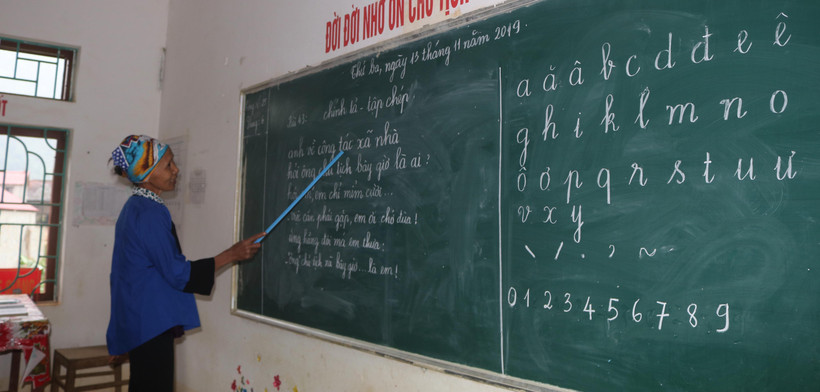 ĐỜI ĐỜI NHỚ ƠN CHỦ TỊCH
Thứ ba, ngày 13 tháng 11 năm 2019.
Bài 43: chính tả - tập chép
anh về công tác xã nhà
hỏi ông chủ tịch bây giờ là ai?
em chỉ mỉm cười...
cần phải gặp, em ơi chớ đùa!
ửng hồng đôi má em thưa:
-"Ông" chủ tịch xã bây giờ... là em!
a ă â b c d đ e ê
g h i k l m n o
ô ơ p q r s t u ư
v x y
\ / . ? ~
0 1 2 3 4 5 6 7 8 9